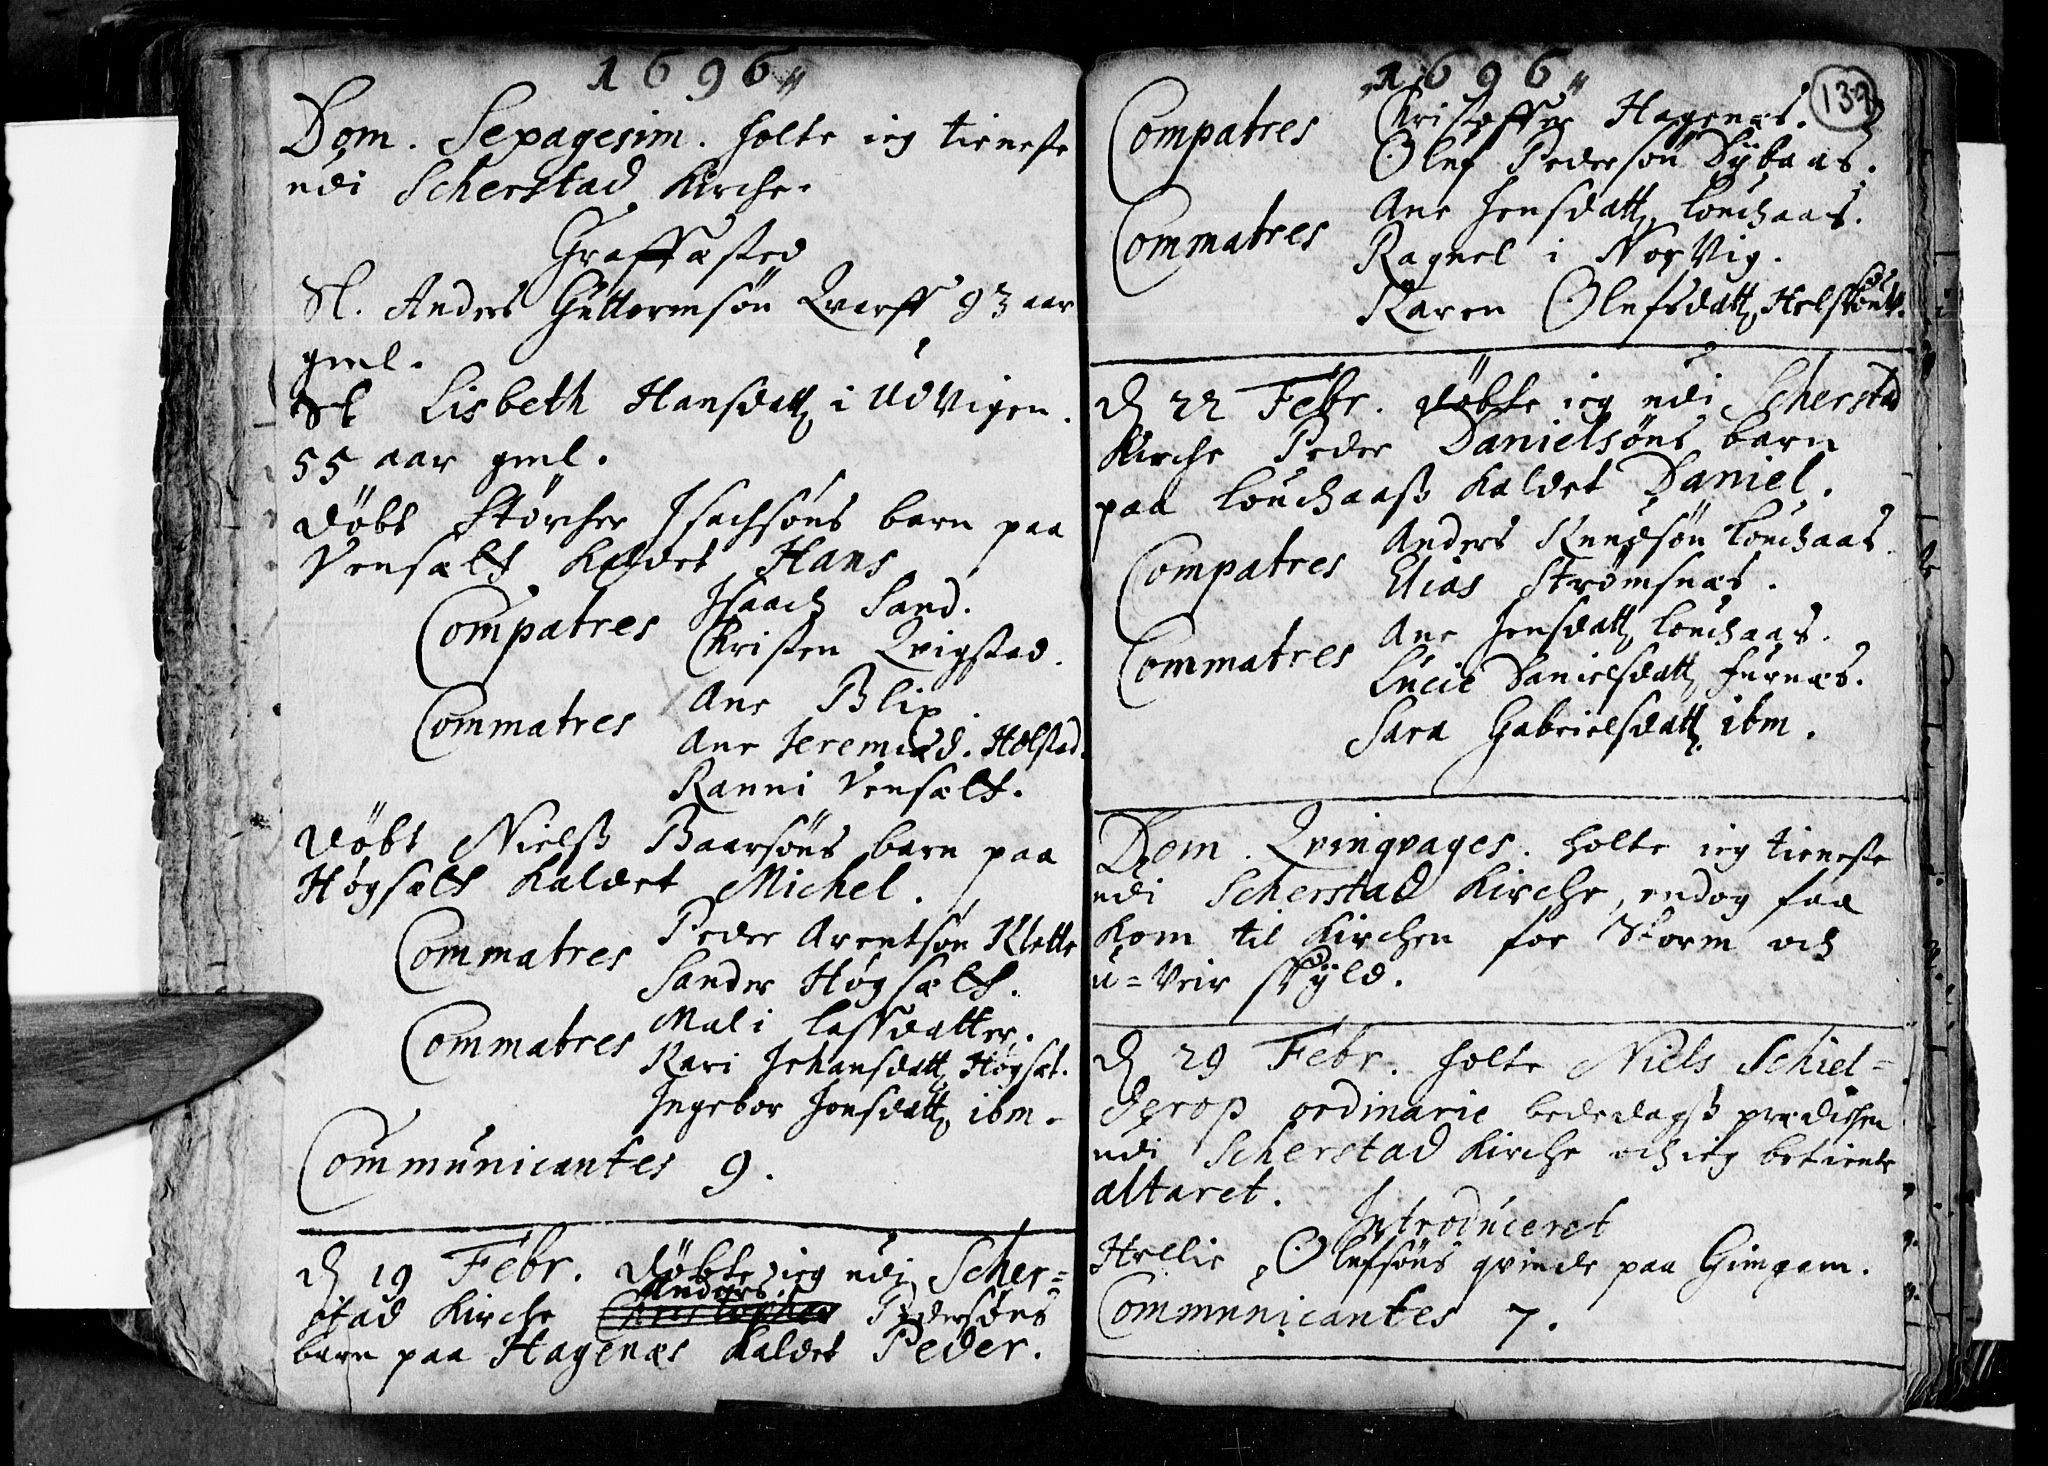 1696
Dom. Sexagesim. holte ieg tieneste
udi Scherstad Kirche.
Graffæsted
Sl. Anders Guttormsøn Qvarff 93 aar
gml.
Sl Lisbeth Hansdatt i UdVigen.
55 aar gml.
døbt Størcher Isachsøns barn paa
Vensælt kaldet Hans
Compatres Isaach Sand.
Christen Qvigstad.
Commatres Ane Blix
Ane Jeremisd. Holstad.
Ranni Vensælt.
døbt Nielß Baarsøns barn paa
Høgsælt kaldet Michel.
Commatres Peder Arentsøn Klette
Sander Høgsælt.
Commatres Mali lassdatter.
Kari Johansdatt, Høgsæt.
Ingebor Jonsdatt ibm.
Communicantes 9.
D 19 Febr. døbte ieg udi Scher=
Anders
stad Kirche Christopher Pedersøns
barn paa Hagenæs kaldet Peder.
1696
139
Compatres Christoffer Hagenæs.
Oluf Pedersøn Dybaas.
Commatres Ane Jensdatt, louchaas.
Ragnel i NorVig.
Karen Olufsdatt,
D 22 Febr. døbte ieg udi Scherstad
Kirche Peder Danielsøns barn
paa louchaaß kaldet Daniel.
Compatres Anders Knudsøn louchaas.
Elias Strømsnæs.
Commatres Ane Jensdatt, louchaas.
Lucie Danielsdatt, furnæs.
Sara Gabrielsdatt, ibm.
Dom. Qvinqvages. holte ieg tieneste
udi Scherstad Kirche, endog faa
kom til Kirchen for Storm och
u=veir skyld.
D 29 Febr. holte Niels Schiel=
derop ordinarie bededagß prædichen
udi Scherstad Kirche och ieg betiente
altaret.
Introduceret
Hellie Olufsøns qvinde paa Gimgam.
Communicantes 7.